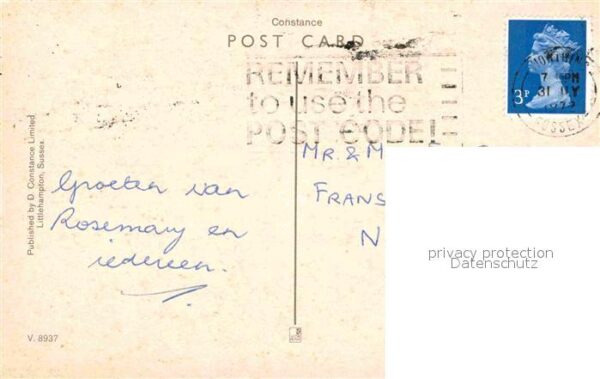 Constance
POST CARD
REMEMBER
to use the
POST CODE!
3P
WORTHING
7 PM
31
1973
SUSSEX
Published by D. Constance Limited
Littlehampton, Sussex.
Groeten van
Rosemary en
iedereen.
MR & M
FRANS
N
privacy protection
Datenschutz
V. 8937